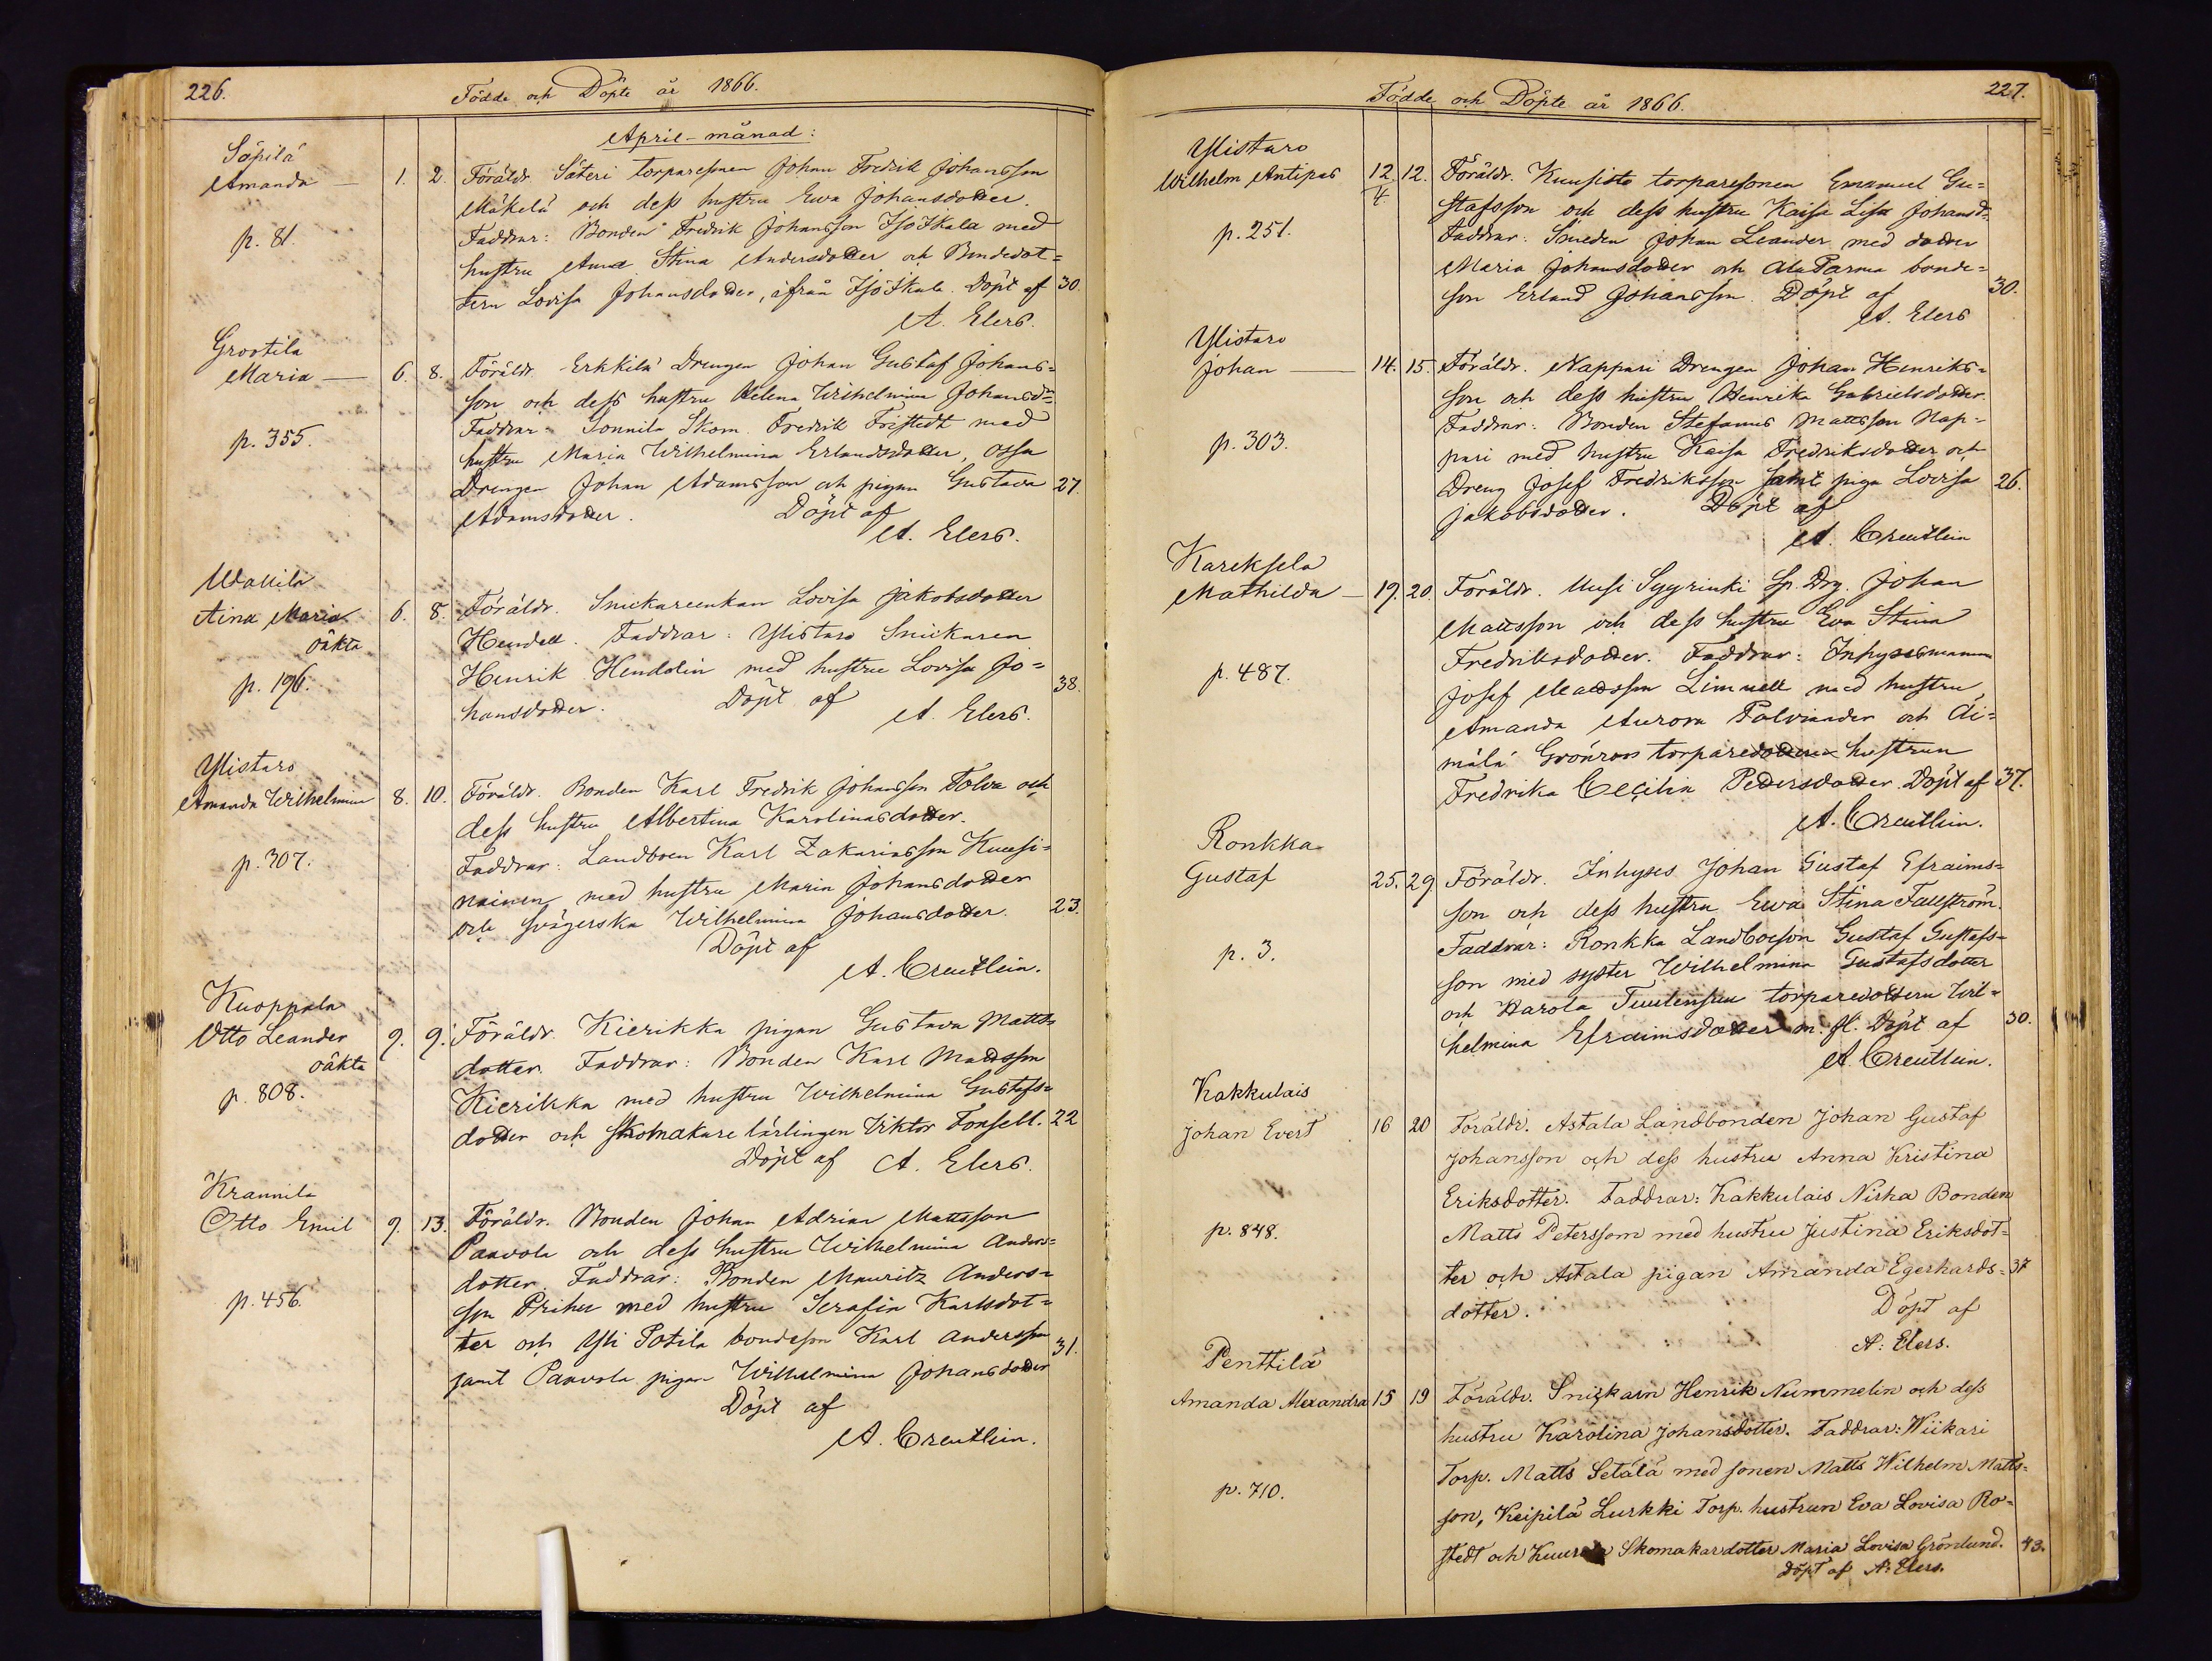 226.
Födde och Döpte år 1866.
April-månad:
Säpilä
Amanda — 1. 2. Föräldr. Säteri torparesonen Johan Fredrik Johansson
Mäkelä och dess hustru Ewa Johansdotter.
p. 81. Faddrar: Bonden Fredrik Johansson Isoskala med
hustru Anna Stina Andersdotter och Bondedot=
tern Lovisa Johansdotter, ifrån Isoskala. Döpt af 30.
A. Elers.
Grootila
Maria — 6. 8. Föräldr. Erkkilä Drengen Johan Gustaf Johans=
son och dess hustru Helena Wilhelmina Johansd=
p. 355. Faddrar: Sonnila Skom. Fredrik Fristedt med
hustru Maria Wilhelmina Erlandsdotter, Ossa
Drengen Johan Adamsson och pigan Gustava 27.
Adamsdotter. Döpt af
A. Elers.
Aina Maria 6. 8. Föräldr. Snickareenkan Lovisa Jakobsdotter
oäkta Hendell. Faddrar: Ylistaro Snickaren
p. 196. Henrik Hendolin med hustru Lovisa Jo=
hansdotter. Döpt af 38.
A. Elers.
Ylistaro
Amanda Wilhelmina 8. 10. Föräldr. Bonden Karl Fredrik Johansson Tolva och
dess hustru Albertina Karolinasdotter.
p. 307. Faddrar: Landboen Karl Zakariasson Kuusi=
nainen med hustru Maria Johansdotter
och svägerska Wilhelmina Johansdotter. 23.
Döpt af
A. Creutlein.
Kuoppala
Otto Leander 9. 9. Föräldr. Kierikka pigan Gustava Matts
oäkta dotter. Faddrar: Bonden Karl Mattsson
p. 808. Kierikka med hustru Wilhelmina Gustafs=
dotter och skomakare lärlingen Viktor Fonsell. 22
Döpt af A. Elers.
Krannila
Otto Emil 9. 13. Föräldr. Bonden Johan Adrian Mattsson
Paavola och dess hustru Wilhelmina Anders=
dotter. Faddrar: Bonden Mauritz Anders=
p. 456. son Prihu med hustru Serafia Karlsdot=
ter och Yli Potila bondeson Karl Andersson 31.
samt Paavola pigan Wilhelmina Johansdotter
Döpt af
A. Creutlein.
Födde och Döpte år 1866.
227.
Ylistaro
Wilhelm Antipas 12/4 12. Föräldr. Kuusisto torparesonen Emanuel Gu=
stafsson och dess hustru Kaisa Lisa Johansd=
p. 251. Faddrar: Smeden Johan Leander med dotter
Maria Johansdotter och Ala Parma bonde=
son Erland Johansson. Döpt af 30.
A. Elers
Ylistaro
Johan — 14. 15. Föräldr. Nappari Drengen Johan Henriks=
son och dess hustru Henrika Gabrielsdotter.
Faddrar: Bonden Stefanus Mattsson Nap=
p. 303. pari med hustru Kaisa Fredriksdotter och
Dreng Josef Fredriksson samt piga Lovisa 26.
Jakobsdotter. Döpt af
A. Creutlein
Kareksela
Mathilda — 19. 20. Föräldr. Uusi Syyrinki Sp. Drg. Johan
Mattsson och dess hustru Eva Stina
Fredriksdotter. Faddrar: Inhysesmannen
p. 487. Josef Mattsson Limnell med hustru
Amanda Aurora Palviander och Äi=
mälä torpare hustrun
Fredrika Cecilia Pettersdotter. Döpt af 37.
A. Creutlein.
Ronkka
Gustaf 25. 29 Föräldr. Inhyses Johan Gustaf Efraims=
son och dess hustru Ewa Stina Fallström.
Faddrar: Ronkka Landboeson Gustaf Gustafs=
p. 3. son med syster Wilhelmina Gustafsdotter
och Harola Tuulensuu torparedottern Wil=
helmina Efraimsdotter m. fl. Döpt af 30.
A. Creutlein.
Kakkulais
Johan Evert 16 20 Föräldr. Astala Landbonden Johan Gustaf
Johansson och dess hustru Anna Kristina
Eriksdotter. Faddrar: Kakkulais Niska Bonden
p. 848. Matts Petersson med hustru Justina Eriksdot=
ter och Astala pigan Amanda Egerhards= 37
dotter. Döpt af
A: Elers.
Penttilä
Amanda Alexandra 15 19 Föräldr. Snickarn Henrik Nummelin och dess
hustru Karolina Johansdotter. Faddrar: Wiikari
Torp. Matts Setälä med sonen Matts Wilhelm Matts=
p. 710. son, Keipilä Lurkki Torp. hustrun Eva Lovisa Ro=
stedt och Skomakardotter Maria Lovisa Grönlund. 43.
Döpt af A: Elers.